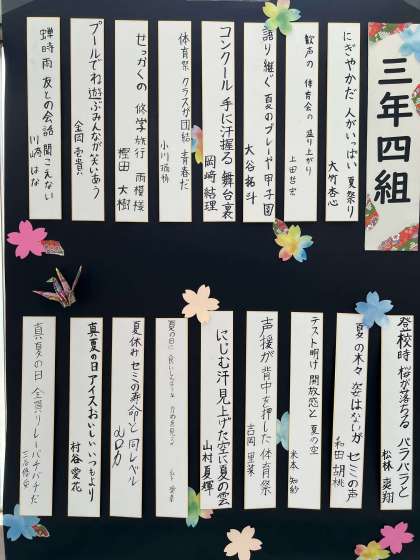 三年四組
にぎやかだ 人がいっぱい 夏祭り
大竹杏心
歓声の 体育会の 盛り上がり
上田哲宏
語り継ぐ 夏のプレーヤ 甲子園
大谷拓斗
コンクール 手に汗握る 舞台裏
岡崎結理
体育祭 クラスが団結 青春だ
小川
せっかくの 修学旅行 雨模様
樫田 大樹
プールでね 遊ぶみんなが 笑いあう
金岡
蝉時雨 友との会話 聞こえない
川崎 はな
登校時 桜が落ちる パラパラと
松林 爽翔
夏の木々 姿はないが セミの声
和田 胡桃
テスト明け 開放感と 夏の空
米本 知紗
声援が 背中を押した 体育祭
吉岡 里菜
にじむ汗 見上げた空に 夏の雲
山村 夏輝
夏の日に
夏休み セミの寿命と 同レベル
真夏の日 アイスおいしい いつもより
村谷 愛花
真夏の日 全員リレー バチバチだ